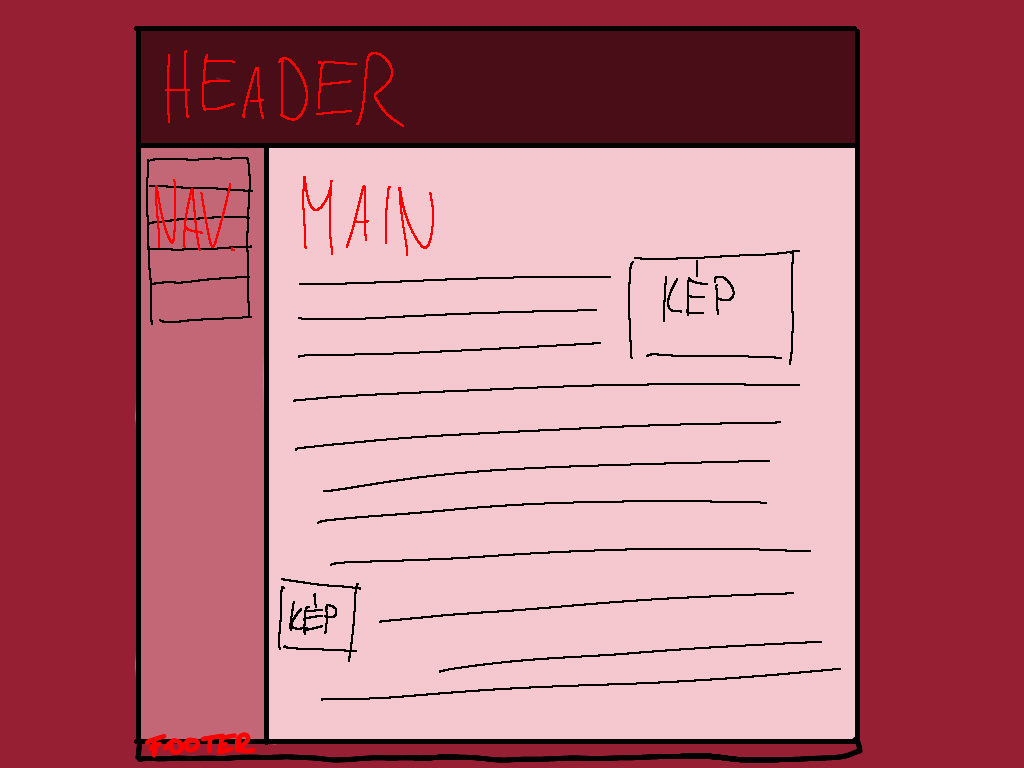 HEADER
NAV.
MAIN
KÉP
KÉP
FOOTER